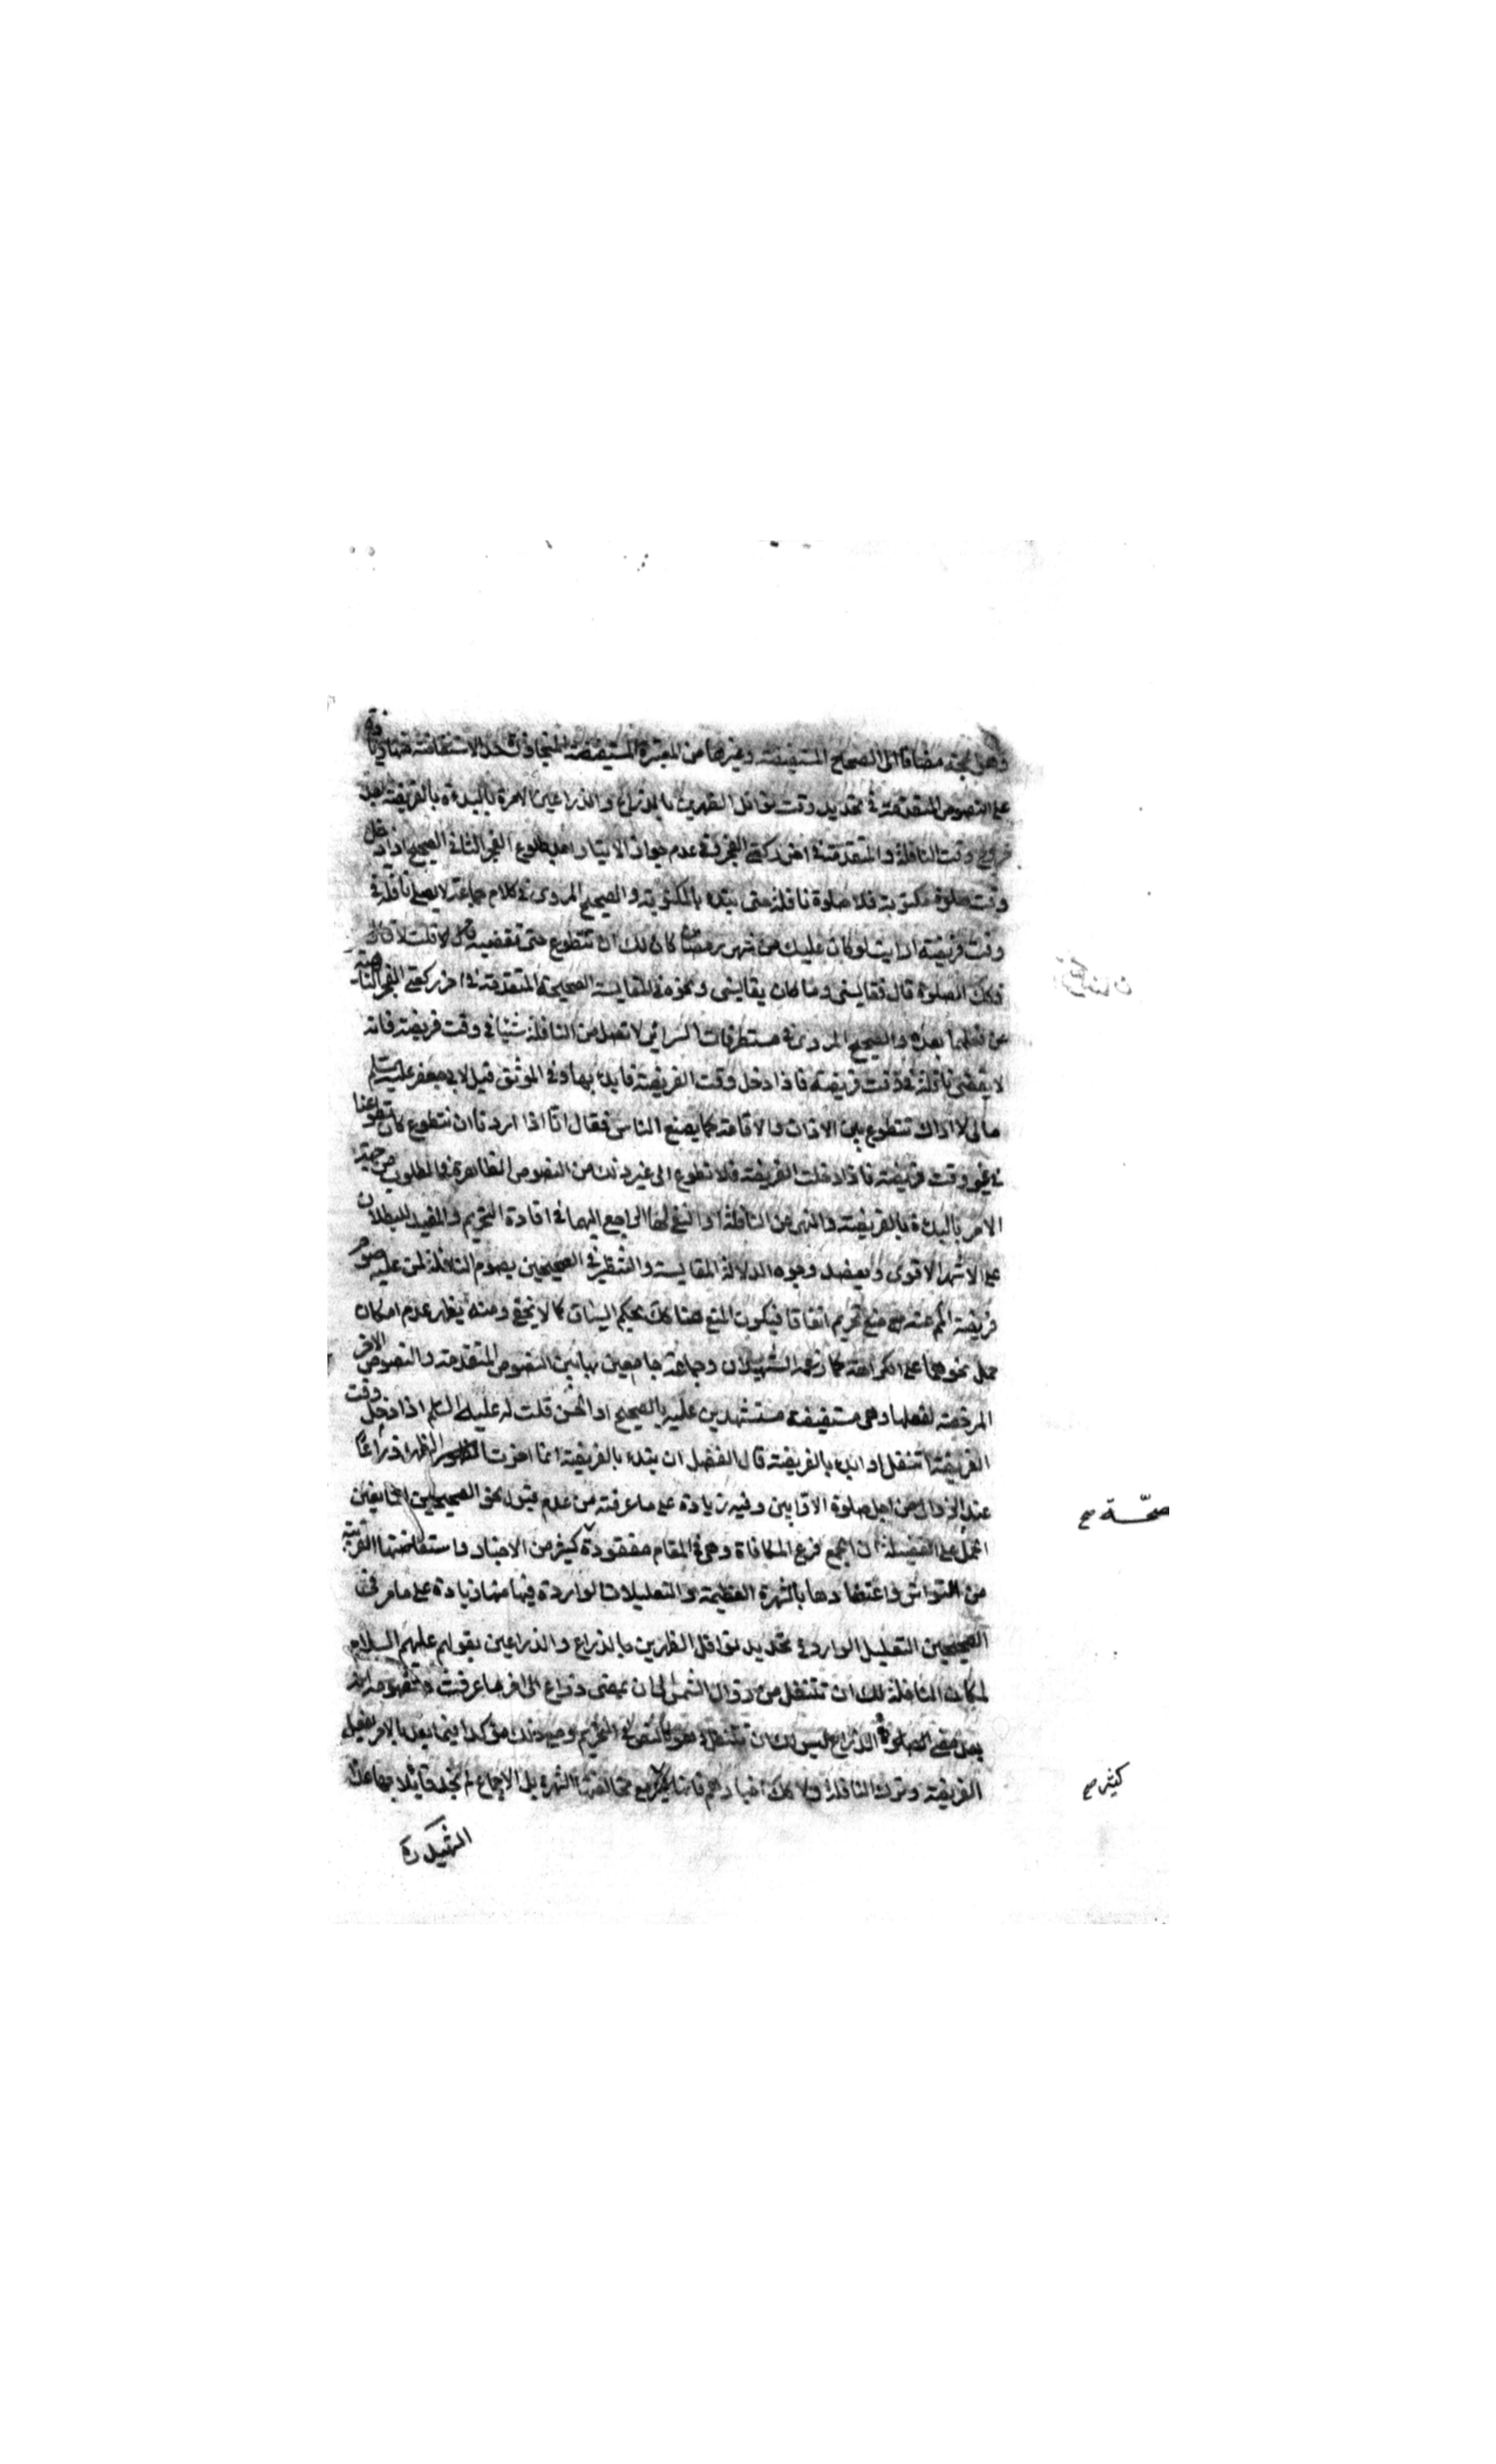 وهي حجة مضافا الى الصحاح المستفيضة وغيرها من المعتبرة المستفيضة المتجاوزة حد الاستفاضة فمنها زيادة
على النصوص المتقدمة في تحديد وقت نوافل الظهرين بالذراع والذراعين الامرة بالبدءة بالفريضة بعد
خروج وقت النافلة والمتقدمة في اخر ركعتي الفجر في عدم جواز الايتار بعد طلوع الفجر الثاني الصحيح اذا دخل
وقت صلوة مكتوبة فلا صلوة نافلة حتى يبتدء بالمكتوبة والصحيح المروي في كلام جماعة لا يصلى نافلة في
وقت فريضة ارايت لو كان عليك من شهر رمضان كان لك ان تتطوع حتى تقضيه قال لا قلت لا قال
فكك الصلوة قال فقايسني وما كان يقايسني ونحوه في المقايسة الصحيحة المتقدمة في اخر ركعتي الفجر الناهية
عن فعلهما بعده والصحيح المروي في مستطرفات السرائر لا تصل من النافلة شيئا في وقت فريضة فانه
لا يقضى نافلة في وقت فريضة فاذا دخل وقت الفريضة فابدء بها وفي الموثق قيل لابي جعفر عليه السلم
مالي لا اراك تتطوع بين الاذان والاقامة كما يصنع الناس فقال انا اذا اردنا ان نتطوع كان تطوعنا
في غير وقت فريضة فاذا دخلت الفريضة فلا تطوع الى غير ذلك من النصوص الظاهرة في المطلوب من جهة
الامر بالبدءة بالفريضة والنهي عن النافلة او النفي لها الراجع اليهما في افادة التحريم والمفيد للبطلان
على الاشهر الاقوى ويعضد وجوه الدلالة المقايسة والتنظير في الصحيحين بصوم النافلة لمن عليه صوم
فريضة المنع عنه منع تحريم اتفاقا فيكون المنع هنا كك بحكم السياق كما لا يخفى ومنه يظهر عدم امكان
حمل نحوهما على الكراهة كما زعمه الشهيدان وجماعة جامعين بها بين النصوص المتقدمة والنصوص الاخر
المرخصة لفعلها وهي مستفيضة مستشهدين عليه بالصحيح او الحسن قلت له عليه السلم اذا دخل وقت
الفريضة اتنفل او ابدء بالفريضة قال الفضل ان يبتدء بالفريضة انما اخرت الظهر ذراعا
عند الزوال من اجل صلوة الاوابين وفيه زيادة على ما عرفته من عدم قبول نحو الصحيحين المانعين
الحمل على الفضيلة ان الجمع فرع المكافاة وهي في المقام مفقودة كيف من الاخبار واستفاضتها القريبة
من التواتر واعتضادها بالشهرة العظيمة والتعليلات الواردة فيها منها زيادة على ما مر في
الصحيحين التعليل الوارد في تحديد نوافل الظهرين بالذراع والذراعين بقولهم عليهم السلام
لمكان النافلة لك ان تتنفل من زوال الشمس الى ان يمضي ذراع الى اخر ما عرفت
الفريضة وترك النافلة ولا كك اخبارهم فانها مع مخالفتها الشهرة بل الاجماع لم نجد قائلا بها عدا
الشهيد ره
صحة صح
كثير صح